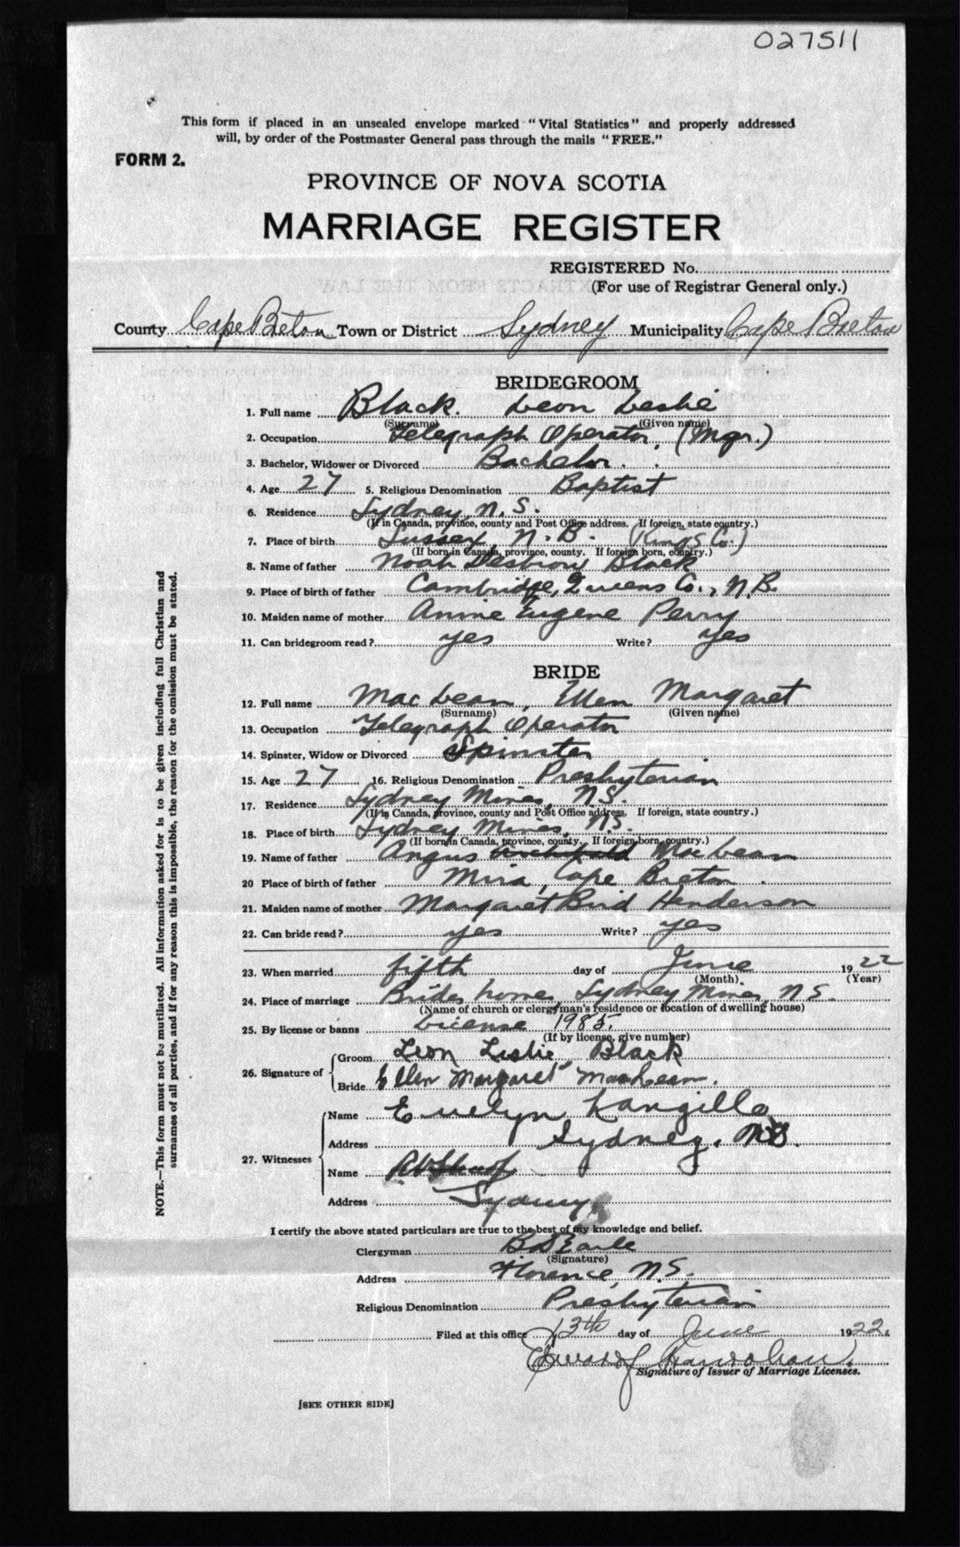 027511
This form if placed in an unsealed envelope marked "Vital Statistics" and properly addressed
will, by order of the Postmaster General pass through the mails "FREE."
FORM 2.
PROVINCE OF NOVA SCOTIA
MARRIAGE REGISTER
REGISTERED No.
(For use of Registrar General only.)
County Cape Breton Town or District Sydney Municipality Cape Breton
BRIDEGROOM
1. Full name Black. Leon Leslie
(Surname) (Given name)
2. Occupation Telegraph Operator, (Mgr.)
3. Bachelor, Widower or Divorced Bachelor.
4. Age 27 5. Religious Denomination Baptist
6. Residence Sydney, N.S.
(If in Canada, province, county and Post Office address. If foreign, state country.)
7. Place of birth Sussex N.B. (Kings Co.)
(If born in Canada, province, county. If foreign born, country.)
8. Name of father Noah Desbrow Black
9. Place of birth of father Cambridge, Queens Co., N.B.
10. Maiden name of mother Annie Eugene Perry
11. Can bridegroom read? yes Write? yes
BRIDE
12. Full name MacLean, Ellen Margaret
(Surname) (Given name)
13. Occupation Telegraph Operator
14. Spinster, Widow or Divorced Spinster
15. Age 27 16. Religious Denomination Presbyterian
17. Residence Sydney Mines, N.S.
(If in Canada, province, county and Post Office address. If foreign, state country.)
18. Place of birth Sydney Mines, N.S.
(If born in Canada, province, county. If foreign born, country.)
19. Name of father Angus Archibald MacLean
20 Place of birth of father Mira, Cape Breton.
21. Maiden name of mother Margaret Bird Henderson
22. Can bride read? yes Write? yes
23. When married fifth day of June 1922
(Month) (Year)
24. Place of marriage Brides home, Sydney Mines, N.S.
(Name of church or clergyman's residence or location of dwelling house)
25. By license or banns License 1985.
(If by license, give number)
26. Signature of Groom Leon Leslie Black
Bride Ellen Margaret MacLean.
27. Witnesses Name Evelyn Langille
Address Sydney, N.S.
Name
Address Sydney
I certify the above stated particulars are true to the best of my knowledge and belief.
Clergyman B D Earle
(Signature)
Address Florence, N.S.
Religious Denomination Presbyterian
Filed at this office 13th day of June 1922.
Signature of Issuer of Marriage Licenses.
[SEE OTHER SIDE]
NOTE.—This form must not be mutilated. All information asked for is to be given including full Christian and
surnames of all parties, and if for any reason this is impossible, the reason for the omission must be stated.